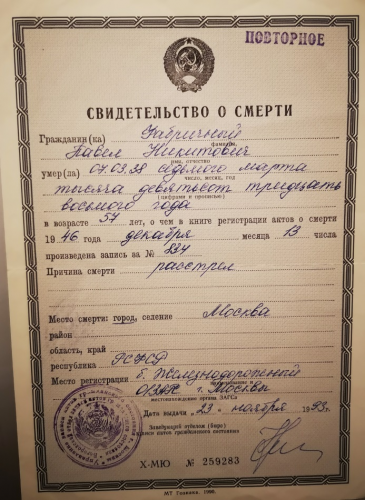 ПОВТОРНОЕ
СВИДЕТЕЛЬСТВО О СМЕРТИ
Гражданин(ка) Фабричный
фамилия
Павел Никитович
имя, отчество
умер(ла) 07.03.38 седьмого марта
число, месяц, год
тысяча девятьсот тридцать
(цифрами и прописью)
восьмого года
в возрасте 57 лет, о чем в книге регистрации актов о смерти
19 46 года декабря месяца 13 числа
произведена запись за № 834
Причина смерти расстрел
Место смерти: город, селение Москва
район
область, край
республика РСФСР
Место регистрации б. Железнодорожный
ОЗАГС г. Москвы
местонахождение органа ЗАГСа
Дата выдачи „23" ноября 1993 г.
Заведующий отделом (бюро)
записи актов гражданского состояния
X-МЮ № 259283
МТ Гознака. 1990.